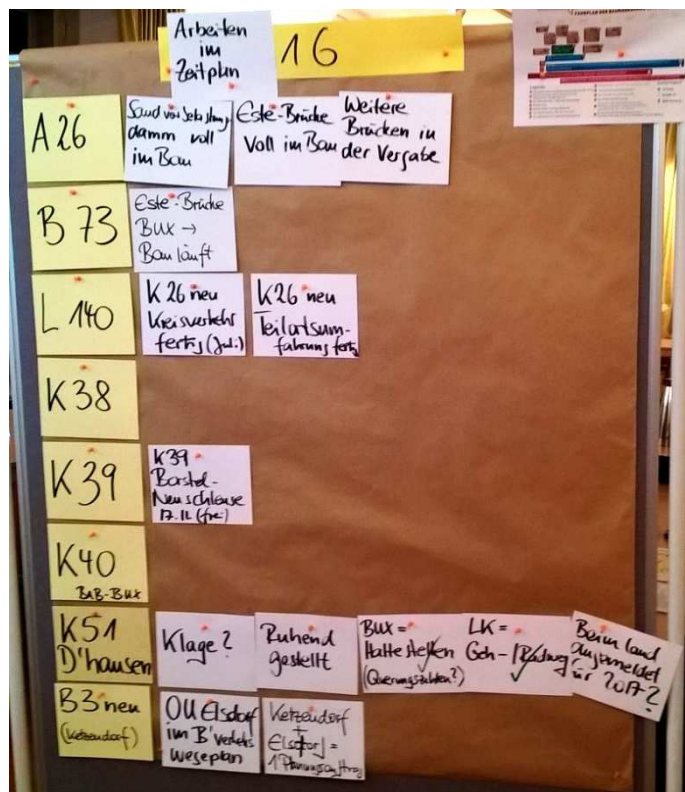 Arbeiten
im
Zeitplan
16
FAHRPLAN DER
A 26
damm voll
im Bau
Este-Brücke
Voll im Bau
Weitere
Brücken in
der Vergabe
B 73
Este-Brücke
BUX →
Bau läuft
L 140
K 26 neu
Kreisverkehr
fertig (Jul.)
K 26 neu
Teilortsum-
fahrung fertig
K 38
K 39
K 39
Borstel-
Neuschleuse
K40
BAB-BUX
K51
D'hausen
Klage?
Ruhend
gestellt
BUX =
Haltestellen
(Querungshilfen?)
LK =
Geh-/Radweg
Beim Land
angemeldet
für 2017?
B3 neu
(Ketzendorf)
OU Elsdorf
im B'verkehrs
wegeplan
Ketzendorf
+
Elsdorf =
1 Planungsauftrag